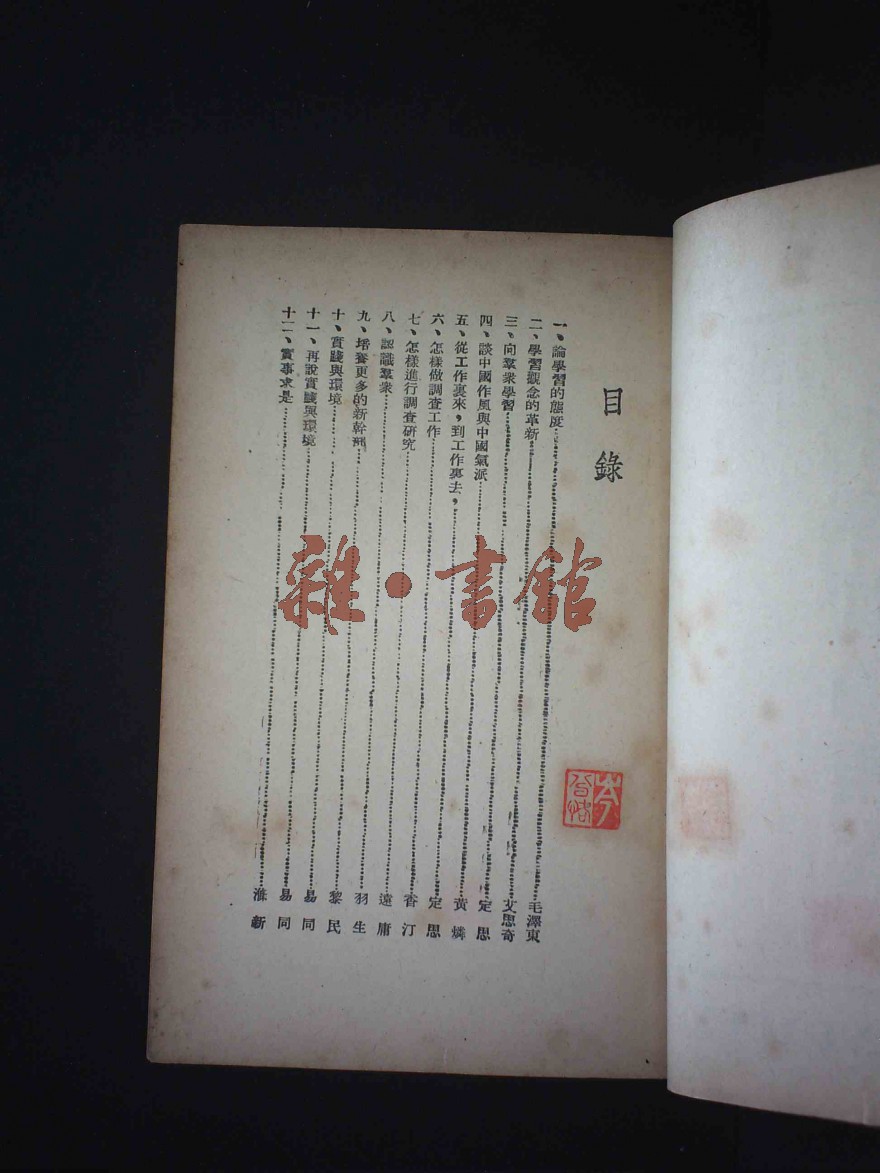 目錄
一、論學習的態度……毛澤東
二、學習觀念的革新……艾思奇
三、向羣衆學習……定思
四、談中國作風與中國氣派……黃燐
五、從工作裏來，到工作裏去，……定思
六、怎樣做調查工作……香汀
七、怎樣進行調查研究……遠庸
八、認識羣衆……羽生
九、培養更多的新幹部……黎民
十、實踐與環境……易同
十一、再說實踐與環境……易同
十二、實事求是……新
雜·書館